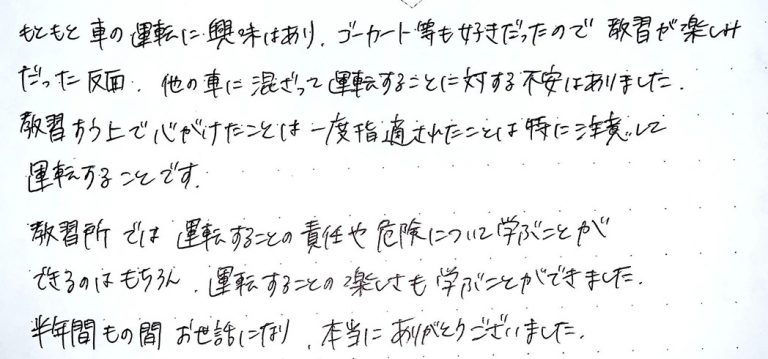 もともと車の運転に興味はあり、ゴーカート等も好きだったので教習が楽しみ
だった反面、他の車に混ざって運転することに対する不安はありました。
教習する上で心がけたことは一度指適されたことは特に注意して
運転することです。
教習所では運転することの責任や危険について学ぶことが
できるのはもちろん、運転することの楽しさも学ぶことができました。
半年間もの間お世話になり、本当にありがとうございました。